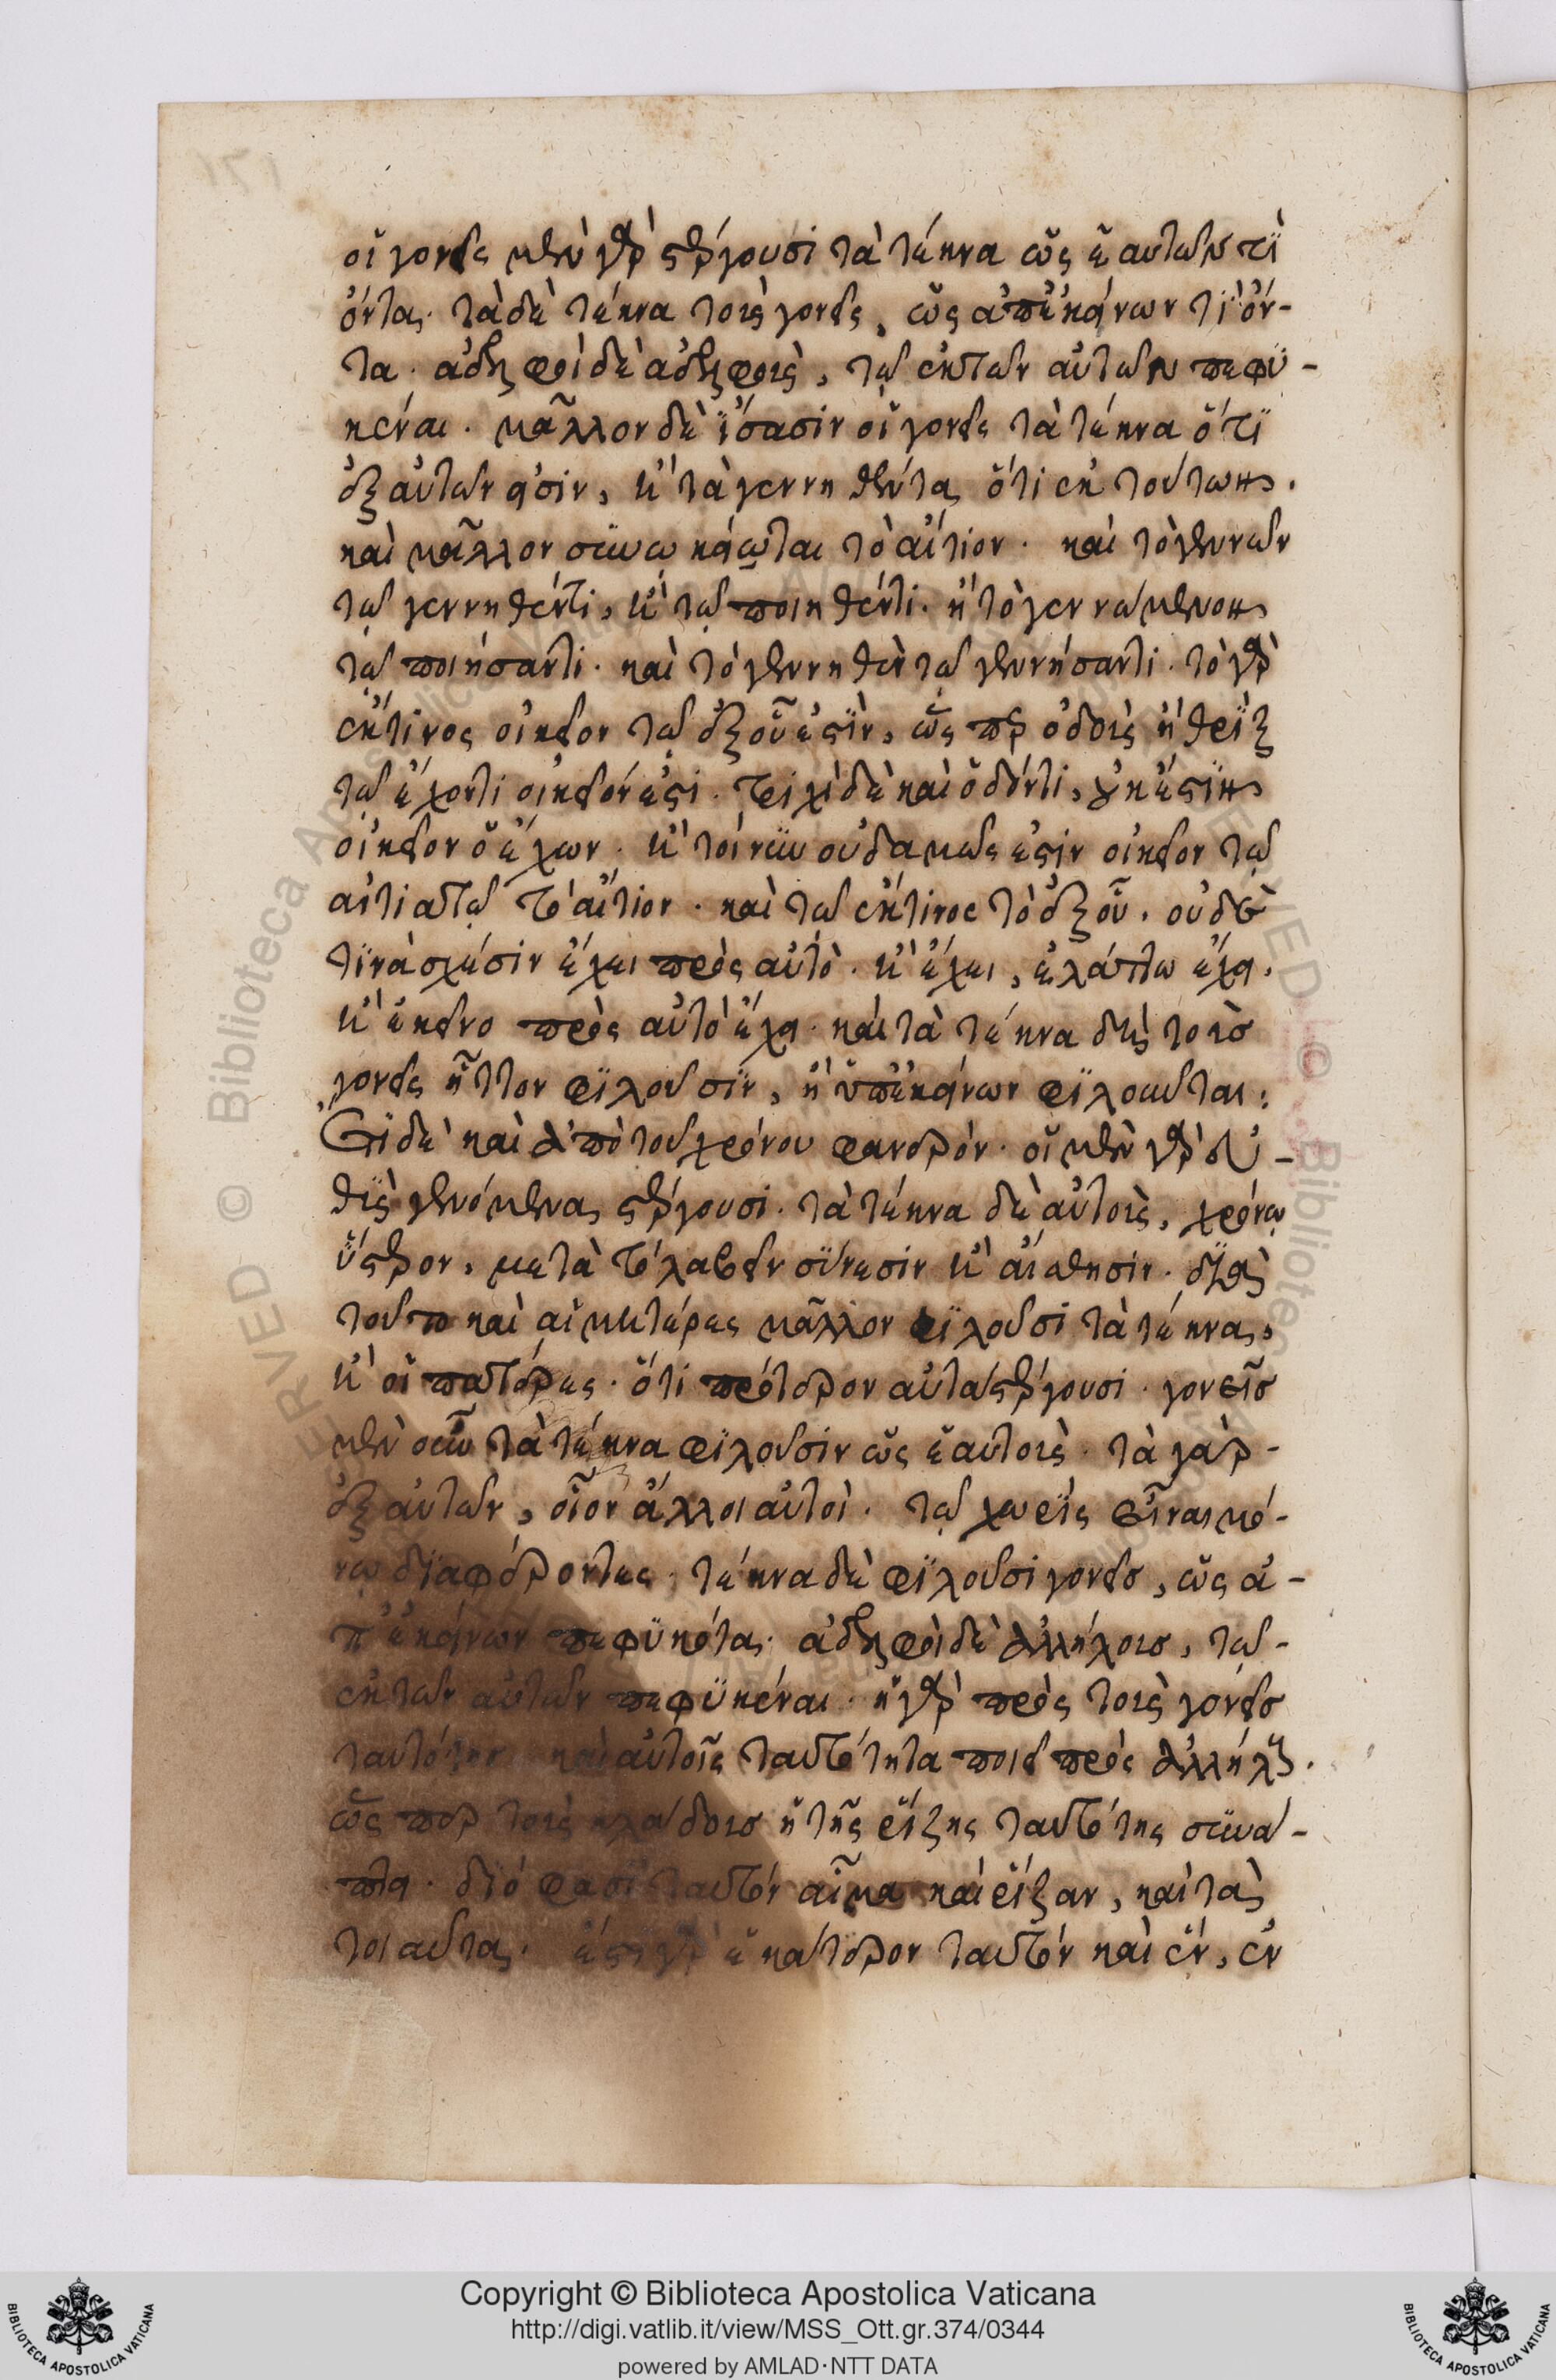 οἱ γονεῖς μὲν γὰρ στέργουσι τὰ τέκνα ὡς ἑαυτῶν τϊ
ὄντα· τὰ δὲ τέκνα τοὺς γονεῖς, ὡς ἀπ' ἐκείνων τϊ ὄν-
τα· ἀδελφοὶ δὲ ἀδελφοὺς, τῷ ἐκ τῶν αὐτῶν πεφϋ-
κέναι· μᾶλλον δὲ ἴσασιν οἱ γονεῖς τὰ τέκνα ὅτϊ
ἐξ αὐτῶν εἰσιν, ἢ τὰ γεννηθέντα ὅτι ἐκ τούτων.
καὶ μᾶλλον συνωκείωται τὸ αἴτιον· καὶ τὸ γεννῶν
τῷ γεννηθέντι, ἢ τῷ ποιηθέντι· ἢ τὸ γεννώμενον
τῷ ποιήσαντι· καὶ τὸ γεννηθὲν τῷ γεννήσαντι· τὸ γὰρ
ἔκ τινος οἰκεῖον τῷ ἐξ οὗ ἐστϊν, ὥς περ ὀδοὺς ἢ θρὶξ
τῷ ἔχοντι οἰκεῖόν ἐστι· τριχὶ δὲ καὶ ὀδόντι, οὐκ ἔστϊν
οἰκεῖον ὁ ἔχων· ἢ τοίνυν οὐδαμῶς ἐστιν οἰκεῖον τῷ
αἰτιατῷ τὸ αἴτιον· καὶ τῷ ἔκ τινος τὸ ἐξ οὗ, οὐδέ
τινὰ σχέσιν ἔχει πρὸς αὐτό· ἢ ἔχει, ἐλάττω ἔχει,
ἢ ἐκεῖνο πρὸς αὐτὸ ἔχει· καὶ τὰ τέκνα δὲ τοὺσ
γονεῖς ἧττον φϊλοῦσϊν, ἢ ὑπ' ἐκείνων φϊλοῦνται:
Ἔτϊ δὲ καὶ ἀπὸ τοῦ χρόνου φανερόν· οἱ μὲν γὰρ εὐ-
θὺς γενόμενα στέργουσι· τὰ τέκνα δὲ αὐτοὺς, χρόνῳ
ὕστερον, μετὰ τὸ λαβεῖν σύνεσιν ἢ αἴσθησιν· διὰ
τοῦτο καὶ αἱ μητέρες μᾶλλον φϊλοῦσι τὰ τέκνα,
ἢ οἱ πατέρες· ὅτι πρότερον αὐτὰ στέργουσι· γονεῖσ
μὲν οὖν τὰ τέκνα φϊλοῦσιν ὡς ἑαυτοὺς· τὰ γὰρ-
ἐξ αὐτῶν, οἷον ἄλλοι αὐτοὶ· τῷ χωρὶς εἶναι μό-
νῳ διαφέροντες· τέκνα δὲ φϊλοῦσι γονεῖσ, ὡς ἀ-
π' ἐκείνων πεφϋκότα· ἀδελφοὶ δὲ ἀλλήλουσ, τῷ-
ἐκ τῶν αὐτῶν πεφϋκέναι· ἡ γὰρ πρὸς τοὺς γονεῖσ
ταυτότης καὶ αὐτοῖς ταυτότητα ποιεῖ πρὸς ἀλλήλους.
ὥς περ τοὺς κλάδουσ ἡ τῆς ῥίζης ταυτότης συνά-
πτει· διό φασϊ ταυτὸν αἷμα καὶ ῥίζαν, καὶ τὰ
τοιαῦτα· ἔστι γὰρ ἑκάτερον ταυτὸν καὶ ἓν, ἐν
Copyright © Biblioteca Apostolica Vaticana
http://digi.vatlib.it/view/MSS_Ott.gr.374/0344
powered by AMLAD·NTT DATA